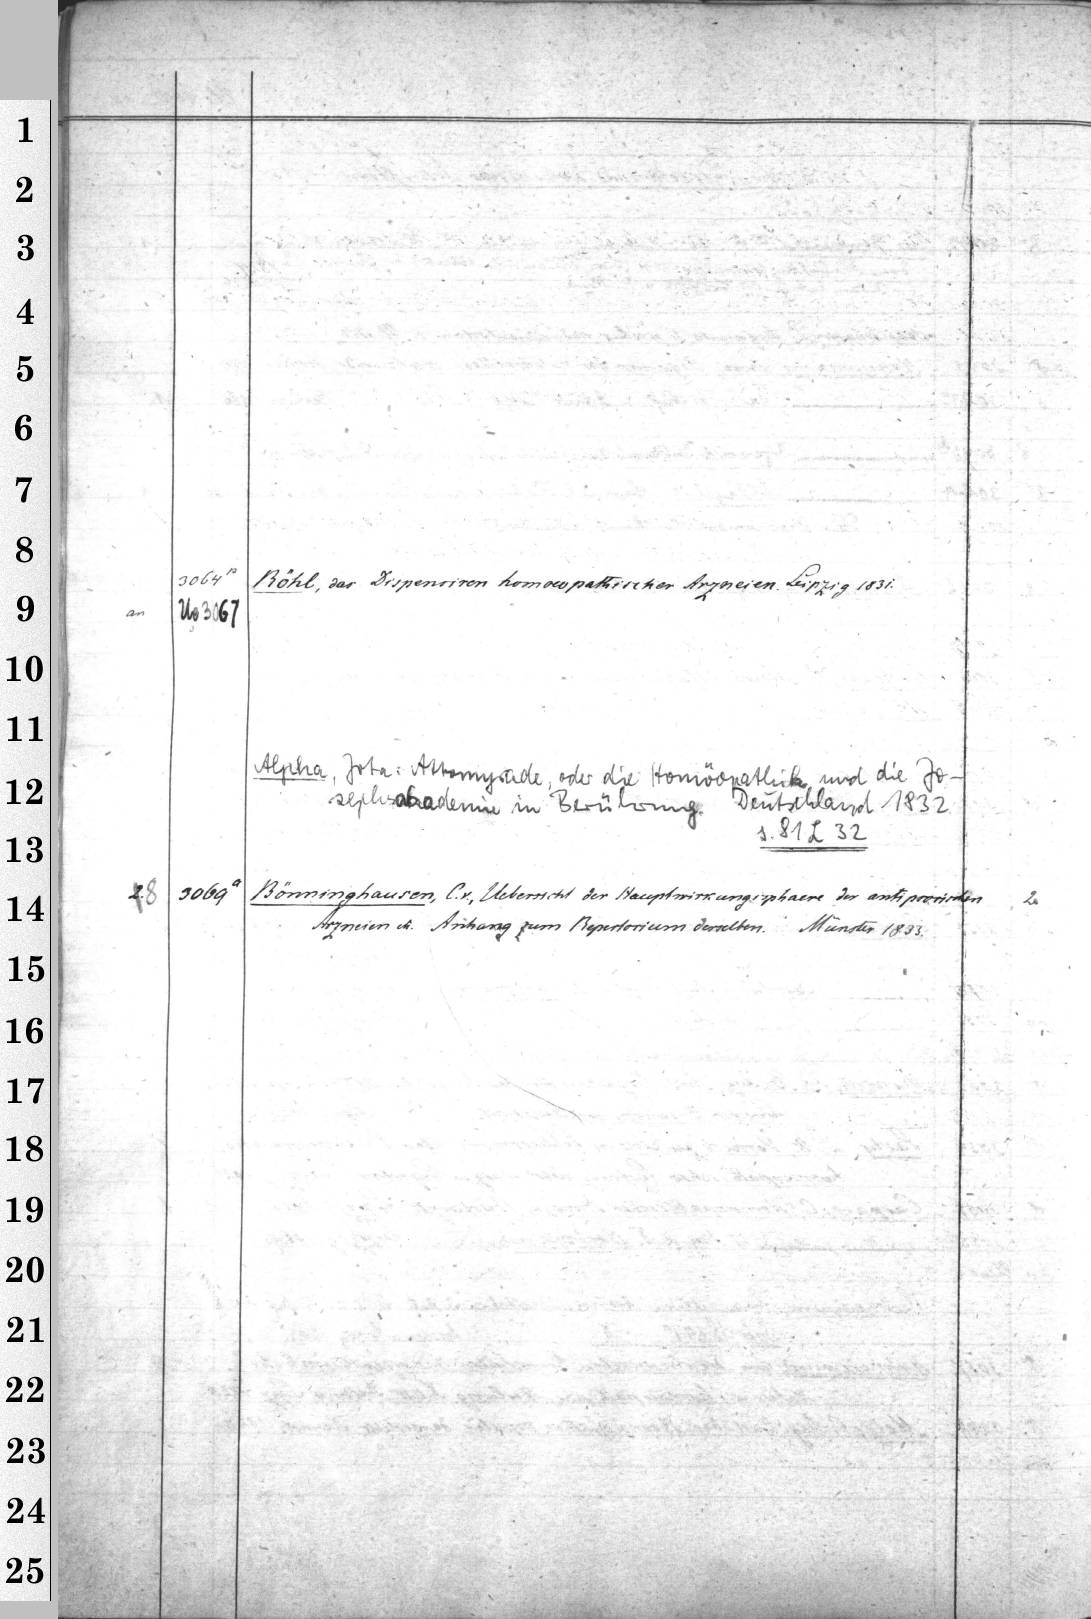 1
2
3
4
5
6
7
8
3064 Röhl, das Dispensiren homoeopathischer Arzneien. Leipzig 1831.
9
an Uo 3067
10
11
Alpha, Jota: Attomyriade, oder die Homöopathik und die Jo-
12
sephsakademie in Berührung. Deutschland 1832
s. 81 L 32
13
8 3069a Bönninghausen, C. v., Uebersicht der Hauptwirkungssphaere der antipsorischen 2.
14
Arzneien etc. Anhang zum Repertorium derselben. Münster 1833.
15
16
17
18
19
20
21
22
23
24
25